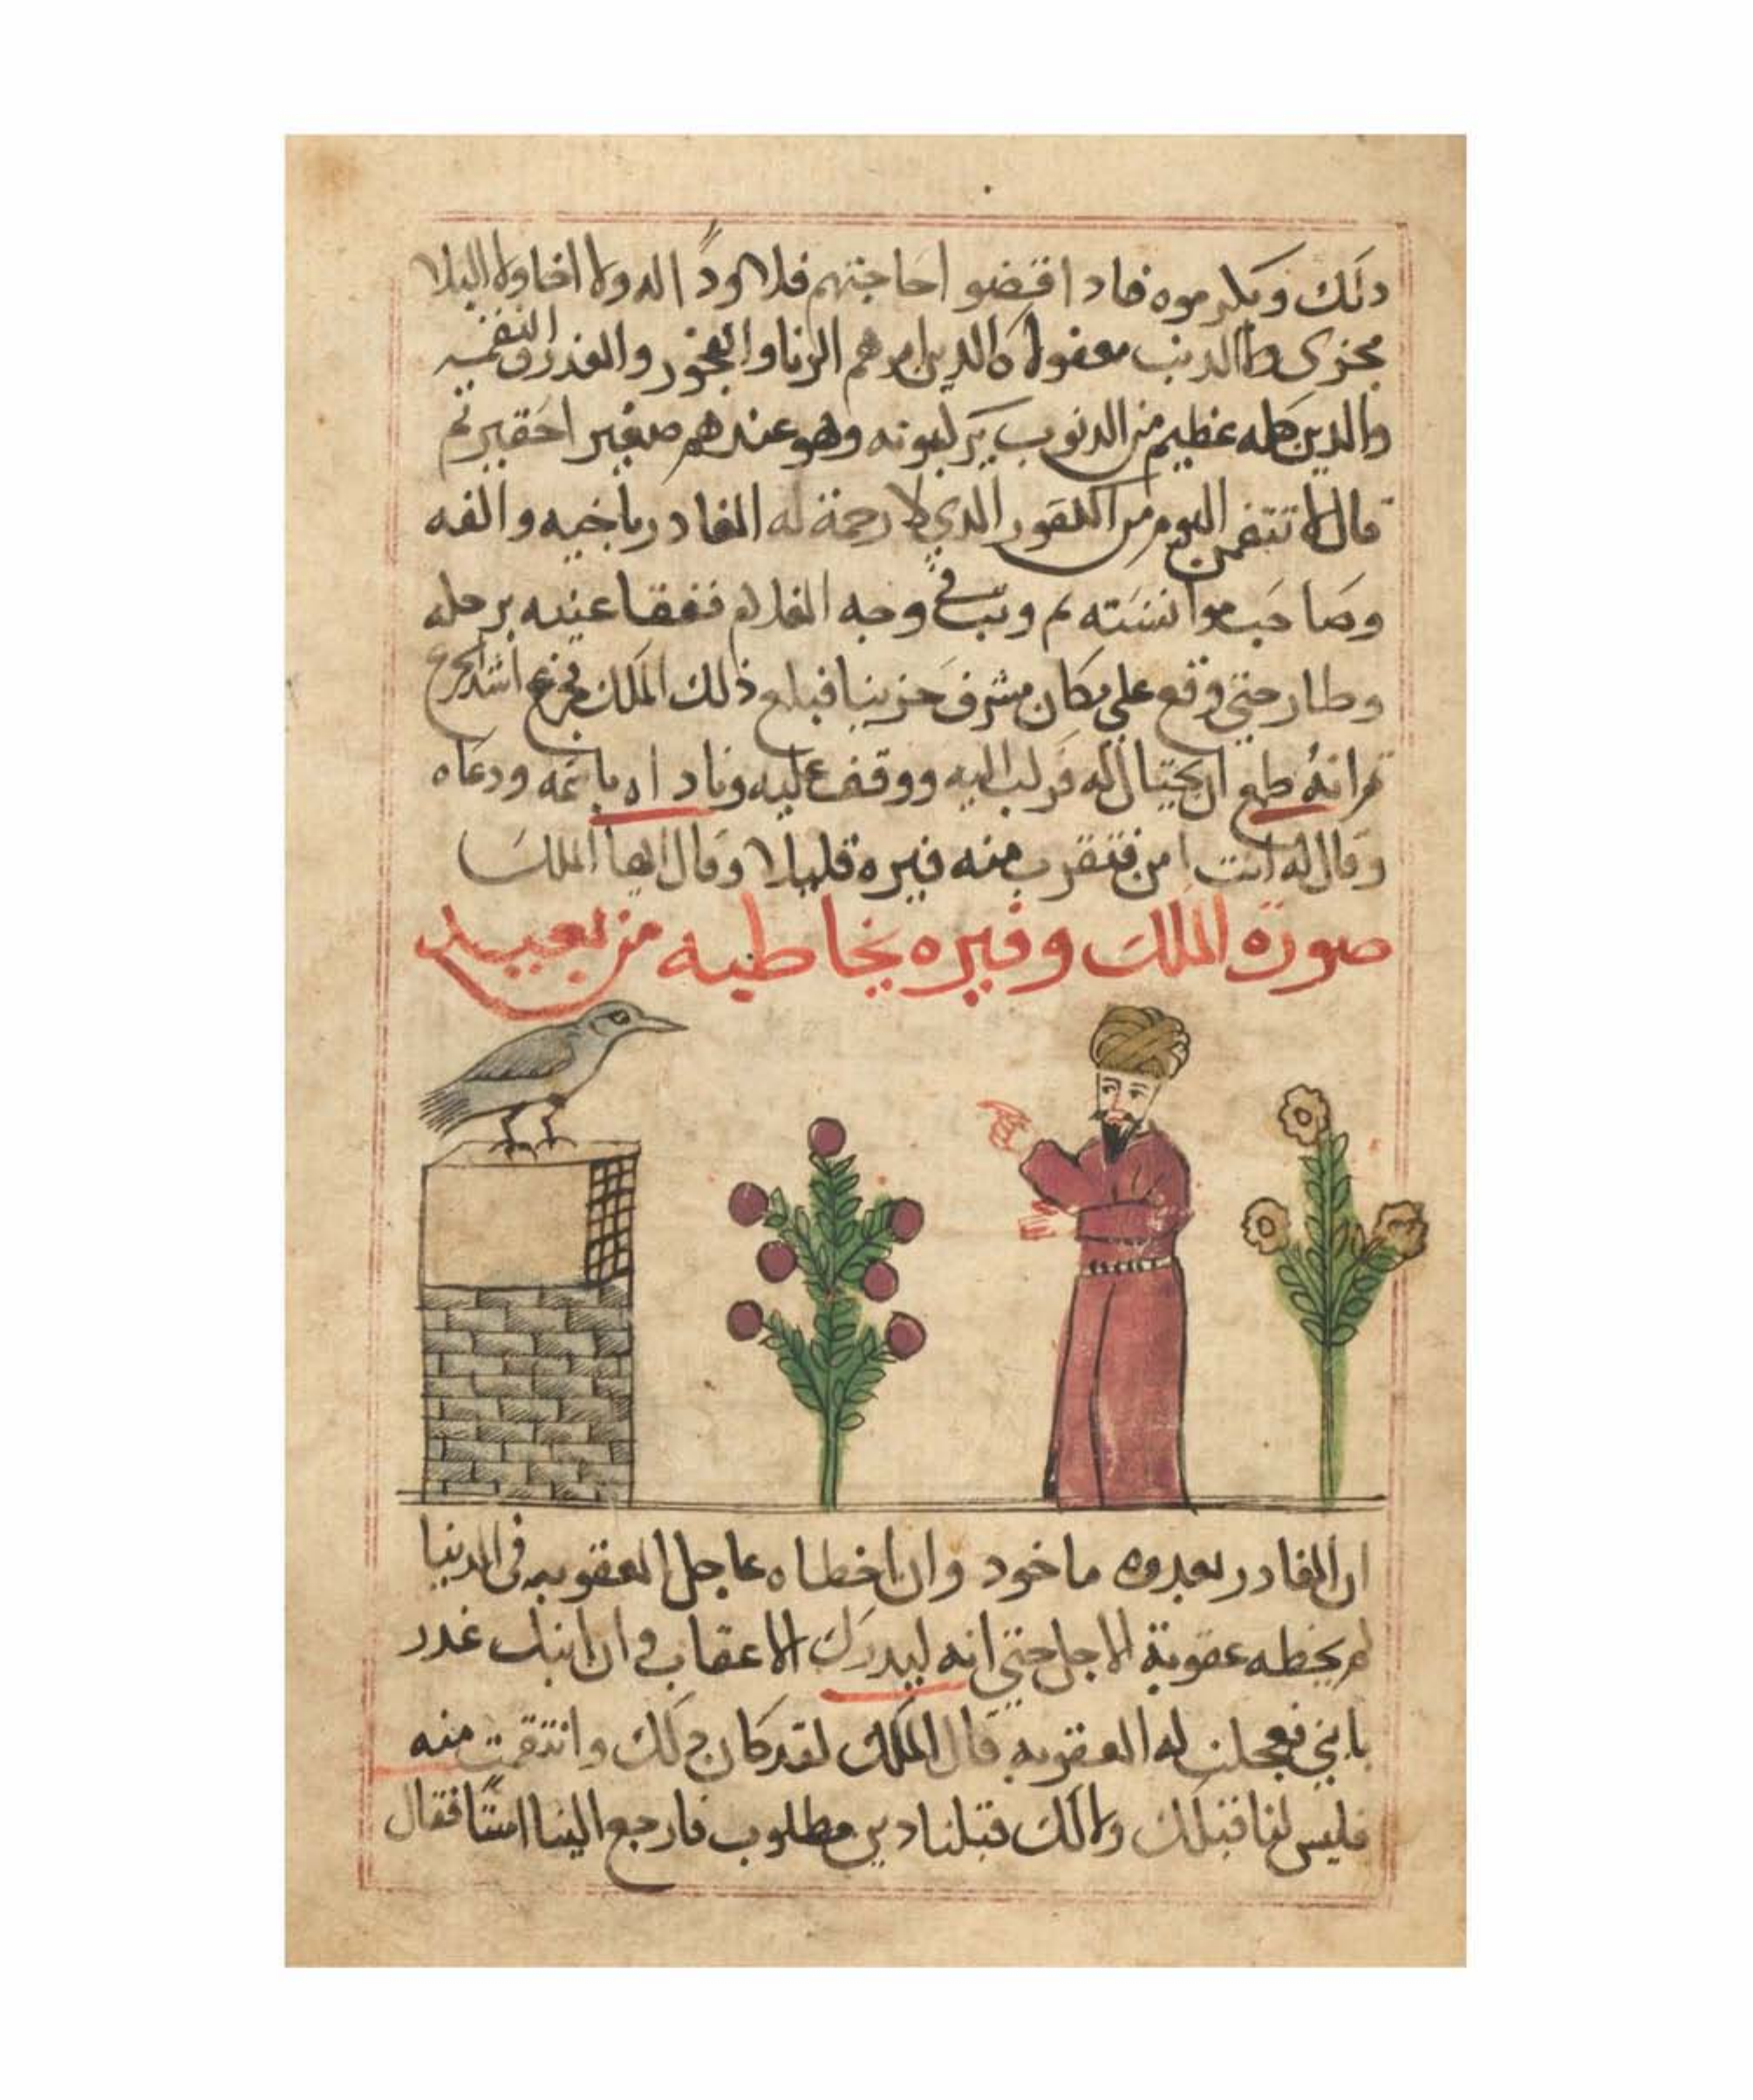 دلك ويكرموه فادا اقتضو احاجتهم فلا ود اله ولا اخا ولا البلا
مجزى ولا الدنب معفولا الدين امرهم الزنا والفخور والغدر والنقمه
والدين كله عظيم من الدنوب يركبونه وهو عندهم صغير احقير ثم
قال لا تتقمن اليوم من الكفور الدي لا رحمة له الغادر باخيه والفه
وصاحب موانسته ثم وثب في وجه الغلام ففقا عينيه برجله
وطار حتى وقع على مكان مشرف حزينا فبلغ ذلك الملك فجزع اشد الجزع
ثم انه طمع ان يحتال له فركب اليه ووقف عليه وناداه باسمه ودعاه
وقال له انت امن فتقرب منه فيره قليلا وقال ايها الملك
صورة الملك وفيره يخاطبه من بعيد
ان الغادر بغدره ماخود وان اخطاه عاجل العقوبه في الدنيا
لم يخطه عقوبة الاجل حتى انه ليدرك الاعقاب وان ابنك غدر
بابني فعجلت له العقوبه قال الملك لقد كان دلك وانتقمت منه
فليس لنا قبلك ولا لك قبلنا دين مطلوب فارجع الينا امنا فقال